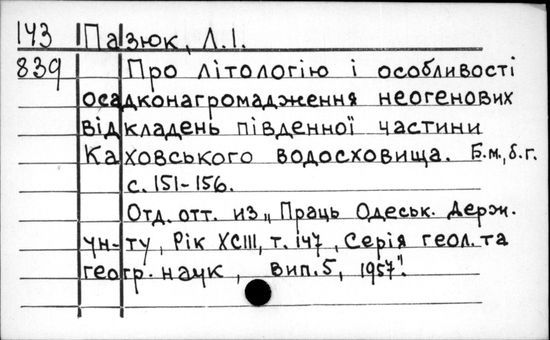 143 Пазюк, Л.І.
839 Про літологію і особливості
осадконагромадження неогенових
відкладень південної частини
Каховського водосховища. Б.м., б.г.
с. 151-156.
Отд. отт. из „Праць Одеськ. Держ.
ун-ту, Рік XCIII, т. 147, Серія геол. та
геогр. наук, вип. 5, 1957".